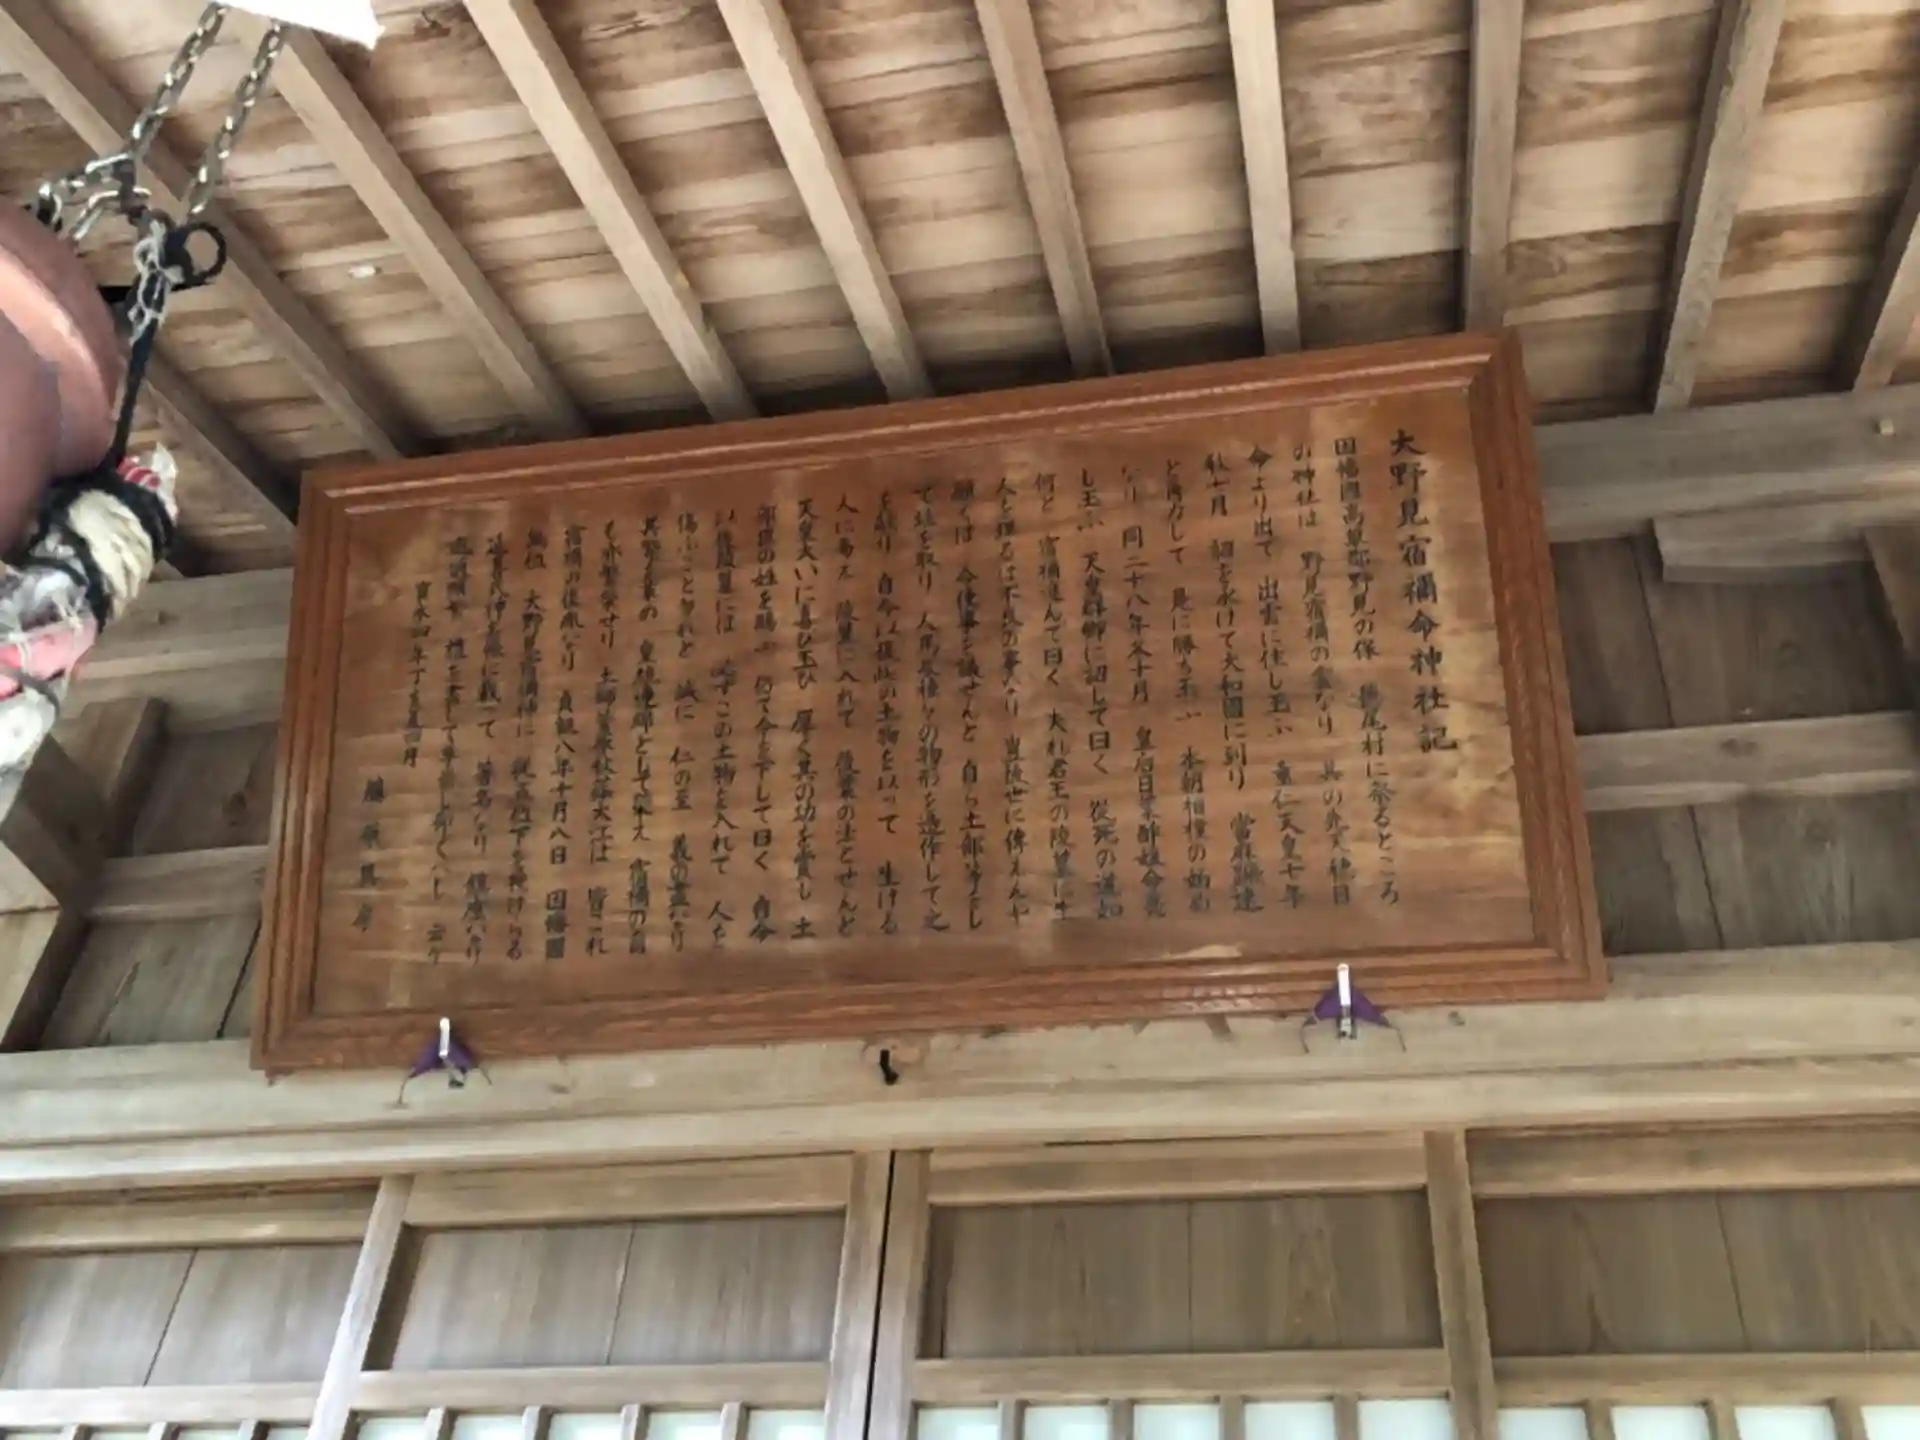 大野見宿禰命神社記
因幡國高草郡野見の保 徳尾村に祭るところ
の神社は 野見宿禰の霊なり 其の先天穂日
命より出て 出雲に住し玉ふ 垂仁天皇七年
秋七月 詔を承けて大和國に到り 當麻蹶速
と角力して 是に勝ち玉ふ 本朝相撲の始め
なり 同二十八年冬十月 皇后日葉酢媛命薨
し玉ふ 天皇群卿に詔して曰く 從死の道如
何と 宿禰進んで曰く 夫れ君王の陵墓に生
人を埋るは不良の事なり 豈後世に傳えんや
願くは 今便事を議せんと 自ら土部等をし
て埴を取り 人馬及種々の物形を造作して之
を献り 自今以後此の土物を以って 生ける
人にあえ 陵墓に入れて 後葉の法とせんと
天皇大いに喜び玉ひ 厚く其の功を賞し 土
部臣の姓を賜ふ 仍て令を下して曰く 自今
以後陵墓には 必ずこの土物を入れて 人を
傷ふこと勿れと 誠に 仁の至 義の盡なり
其
も亦繁栄せり 土師菅原秋篠大江は 皆これ
宿禰の後胤なり 貞観八年十月八日 因幡國
無位 大野見宿禰神に 從五位下を授けらる
延喜式神名帳に載って 著名なり 鎮座
寶永四年丁亥夏四月